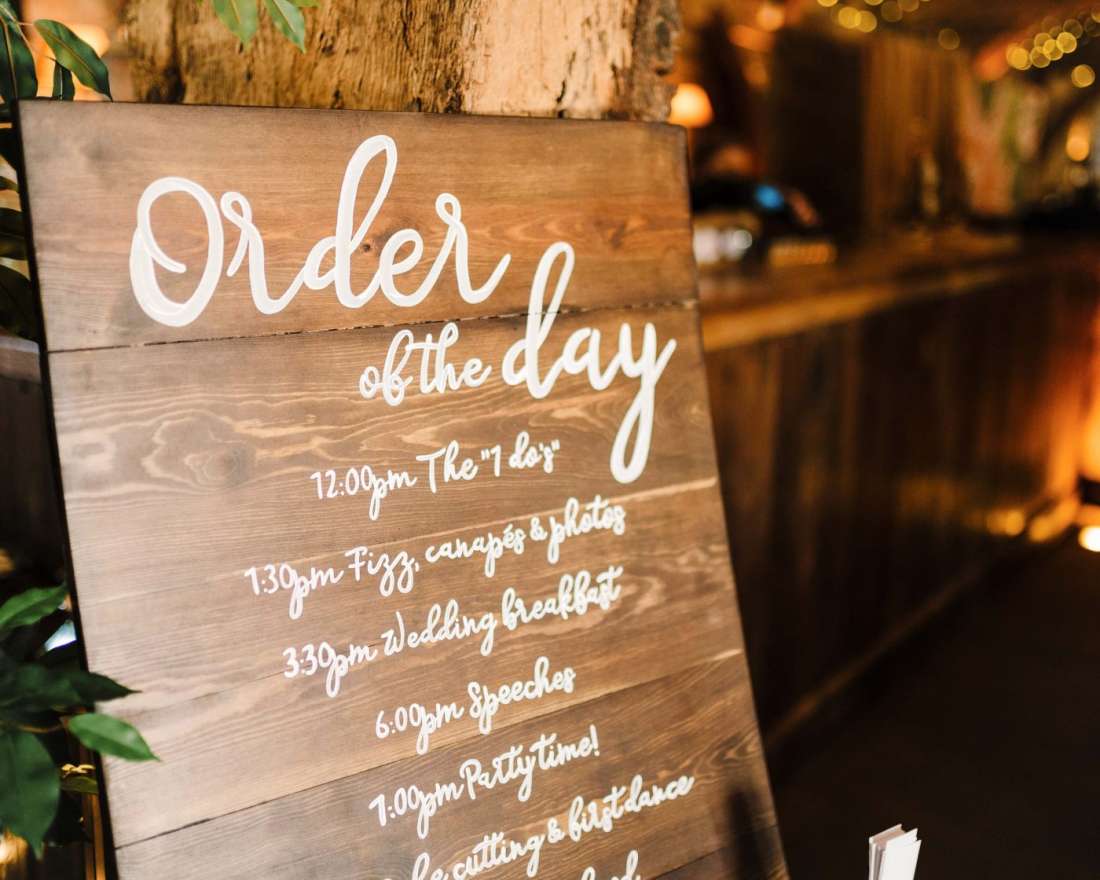 Order
of the day
12:00pm The "I do's"
1:30pm Fizz, canapés & photos
3:30pm Wedding breakfast
6:00pm Speeches
7:00pm Party time!
cutting & first dance